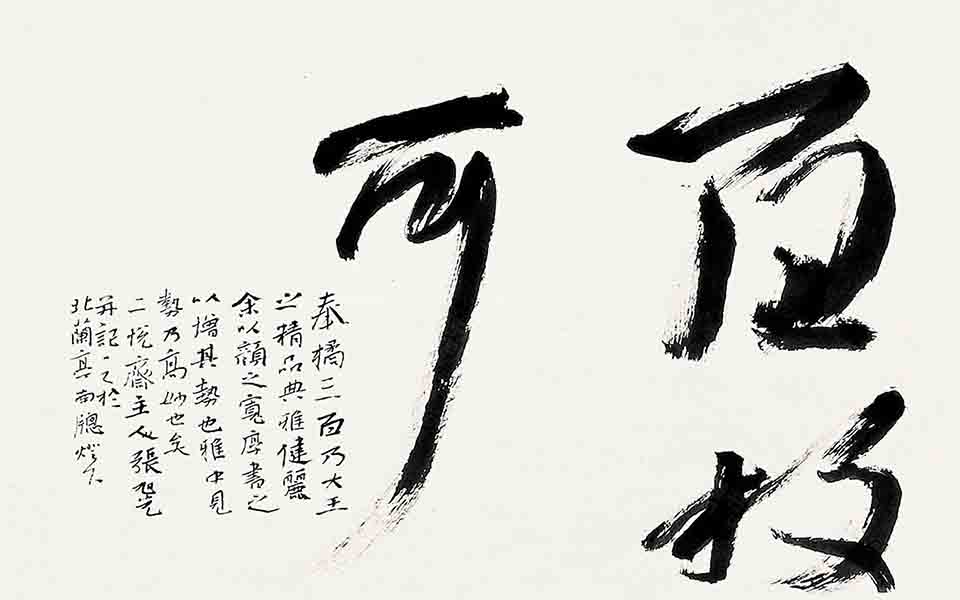 百枚
可
奉橘三百乃大王
之精品典雅健麗
余以顏之寬厚書之
以增其勢也雅中見
勢乃高妙也矣
二悦齋主人張旭光
并記之於
北蘭亭南牕燈下